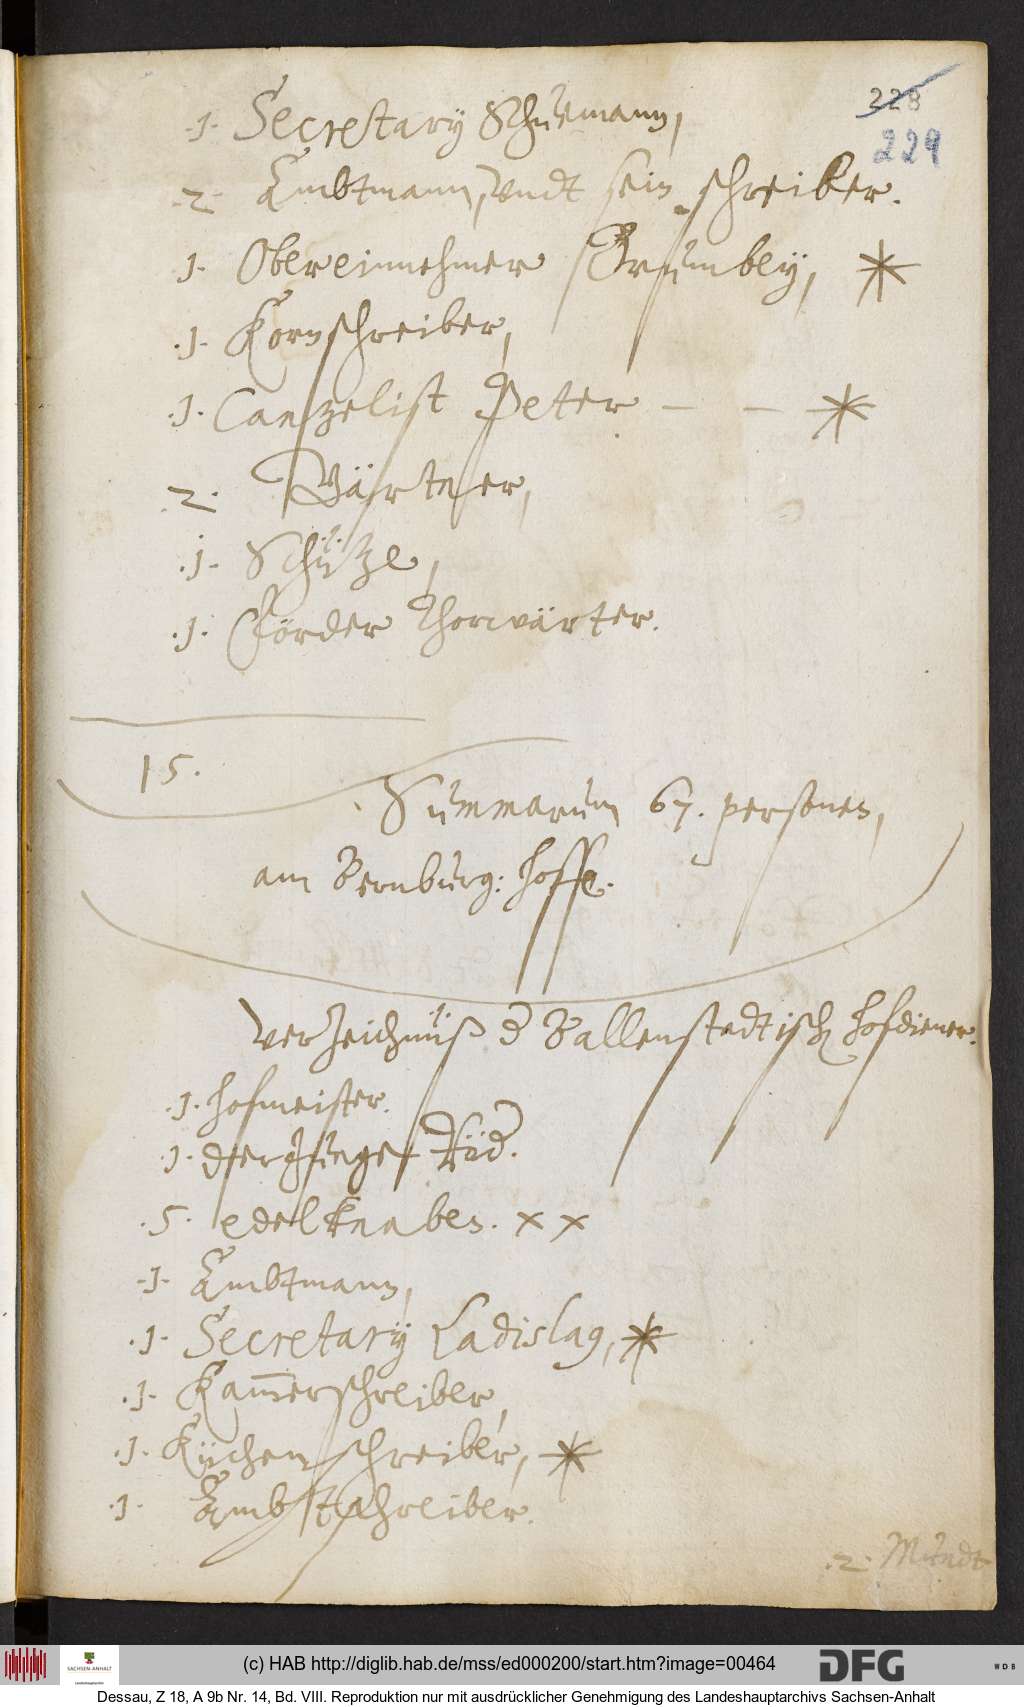 228
229
.1. Secretarÿ Schuemann,
.2. Ambtmann, undt sein schreiber.
.1. Obereinnehmer Brümbeÿ, *
.1. Kornschreiber,
.1. Cantzelist Peter — — *
.2. Wärtner,
.1. Schütze,
.1. Förder Thorwärter.
15.
Summarum 67. personen,
am Bernburg: hoffe.
Verzeichnüß d Ballenstedtisch hofdiener.
.1. hofmeister.
.1. der Junge
.5. edelknaben. x x
.1. Ambtmann,
.1. Secretarÿ Ladislag, *
.1. Kam̅erschreiber,
.1. Küchenschreiber, *
.1. Ambtschreiber.
.2. Mundt
SACHSEN-ANHALT
(c) HAB http://diglib.hab.de/mss/ed000200/start.htm?image=00464
DFG
WDB
Dessau, Z 18, A 9b Nr. 14, Bd. VIII. Reproduktion nur mit ausdrücklicher Genehmigung des Landeshauptarchivs Sachsen-Anhalt